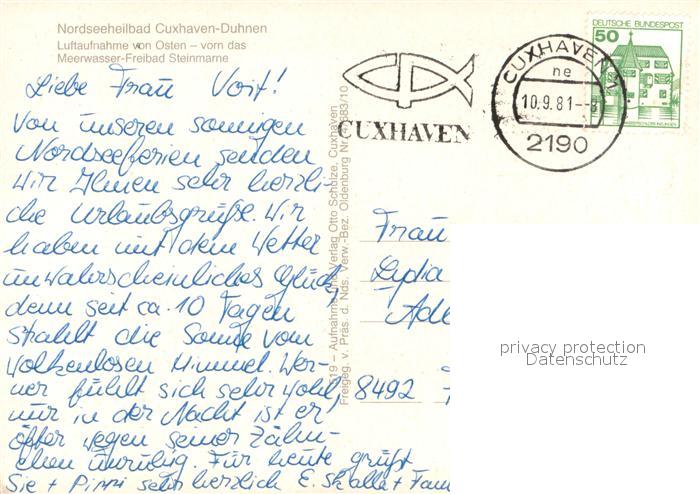 Nordseeheilbad Cuxhaven-Duhnen
Luftaufnahme von Osten – vorn das
Meerwasser-Freibad Steinmarne
Liebe Frau Voit!
Von unseren sonnigen
Nordseeferien senden
wir Ihnen sehr herzli-
che Urlaubsgrüße. Wir
haben mit dem Wetter
unwahrscheinliches Glück,
denn seit ca. 10 Tagen
strahlt die Sonne vom
wolkenlosen Himmel. Wer-
ner fühlt sich sehr wohl,
nur in der Nacht ist er
öfter wegen seiner Zähn-
chen unruhig. Für heute grüßt
Sie + Pippi sehr herzlich E. + Fam
Aufnahme und Verlag Otto Schulze, Cuxhaven
Freigeg. v. Präs. d. Nds. Verw.-Bez. Oldenburg Nr.
CUXHAVEN
CUXHAVEN 1
ne
10.9.81.-8
2190
DEUTSCHE BUNDESPOST
50
Frau
Lydia
8492
privacy protection
Datenschutz